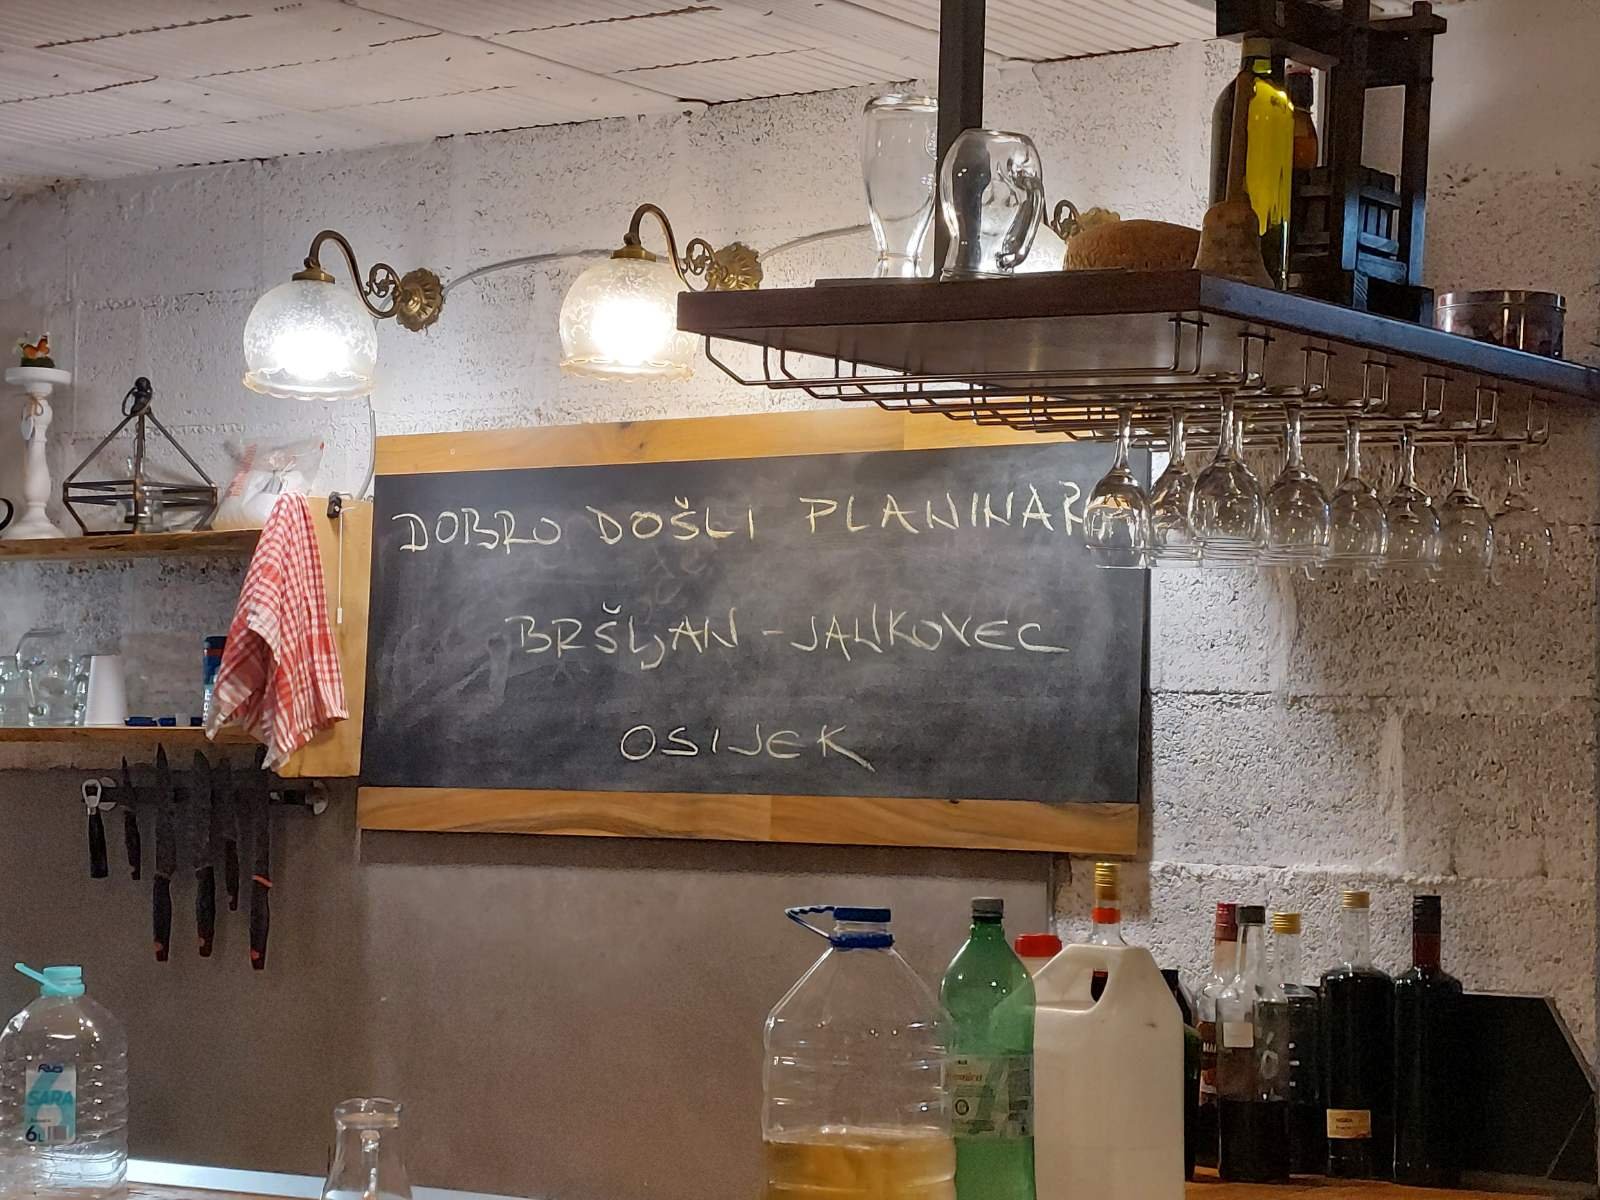 DOBRO DOŠLI PLANINARI
BRŠLJAN - JANKOVEC
OSIJEK
SARA
6L